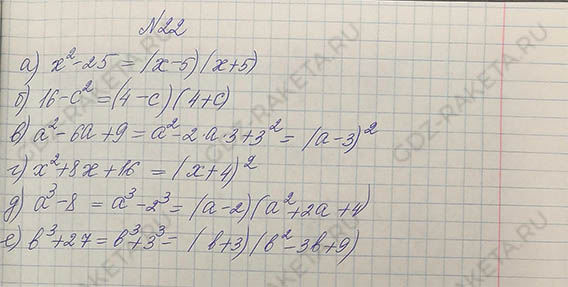 №22
а) x²-25 = (x-5)(x+5)
б) 16-c² = (4-c)(4+c)
в) a²-6a+9 = a²-2·a·3+3² = (a-3)²
г) x²+8x+16 = (x+4)²
д) a³-8 = a³-2³ = (a-2)(a²+2a+4)
е) b³+27 = b³+3³ = (b+3)(b²-3b+9)
GDZ-RAKETA.RU
GDZ-RAKETA.RU
GDZ-RAKETA.RU
GDZ-RAKETA.RU